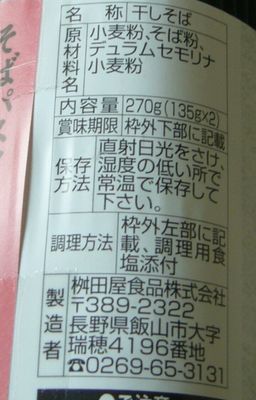 名称 干しそば
原材料名 小麦粉、そば粉、
デュラムセモリナ
小麦粉
内容量 270g(135g×2)
賞味期限 枠外下部に記載
保存方法 直射日光をさけ、
湿度の低い所で
常温で保存して
下さい。
調理方法 枠外左部に記
載、調理用食
塩添付
製造者 桝田屋食品株式会社
〒389-2322
長野県飯山市大字
瑞穂4196番地
☎0269-65-3131
そばパスタ